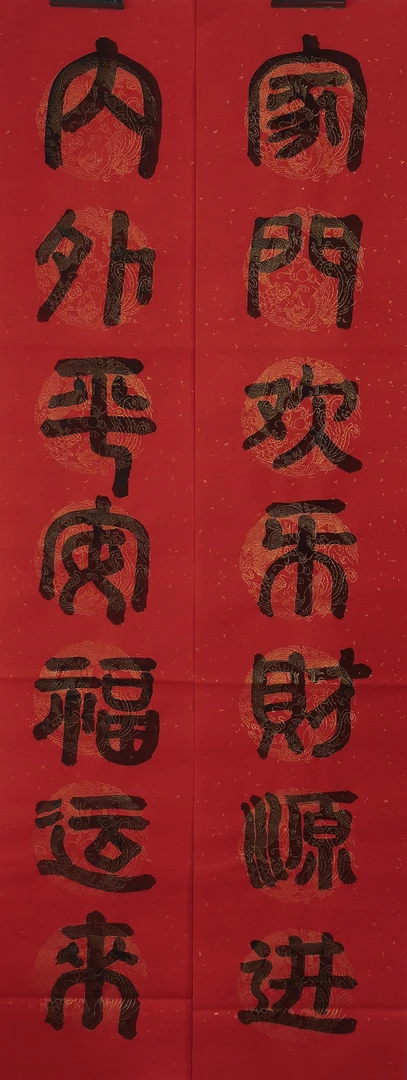 家門欢乐財源进
内外平安福运来